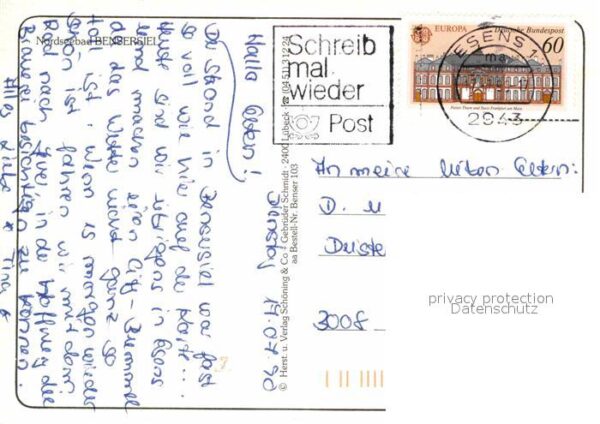 Nordseebad BENSERSIEL
Dienstag 17.07.90
Hallo Eltern!
Der Strand in Bensersiel war fast
so voll wie hier auf der Karte...
Heute sind wir übrigens in Esens
und machen einen City-Bummel
da das Wetter nicht ganz so
toll ist. Wenn es morgen wieder
schön ist fahren wir mit dem
Rad nach Jever in der Hoffnung die
Brauerei besichtigen zu können.
Alles Liebe Tina
© Herst. u. Verlag Schöning & Co + Gebrüder Schmidt · 2400 Lübeck · ☎ (04 51) 3 12 24
aa Bestell-Nr. Benser 103
Schreib
mal
wieder
Post
EUROPA Deutsche Bundespost
60
Palais Thurn und Taxis Frankfurt am Main
ESENS 1
ma
2943
An meine lieben Eltern:
D. M
Deiste
3008
privacy protection
Datenschutz